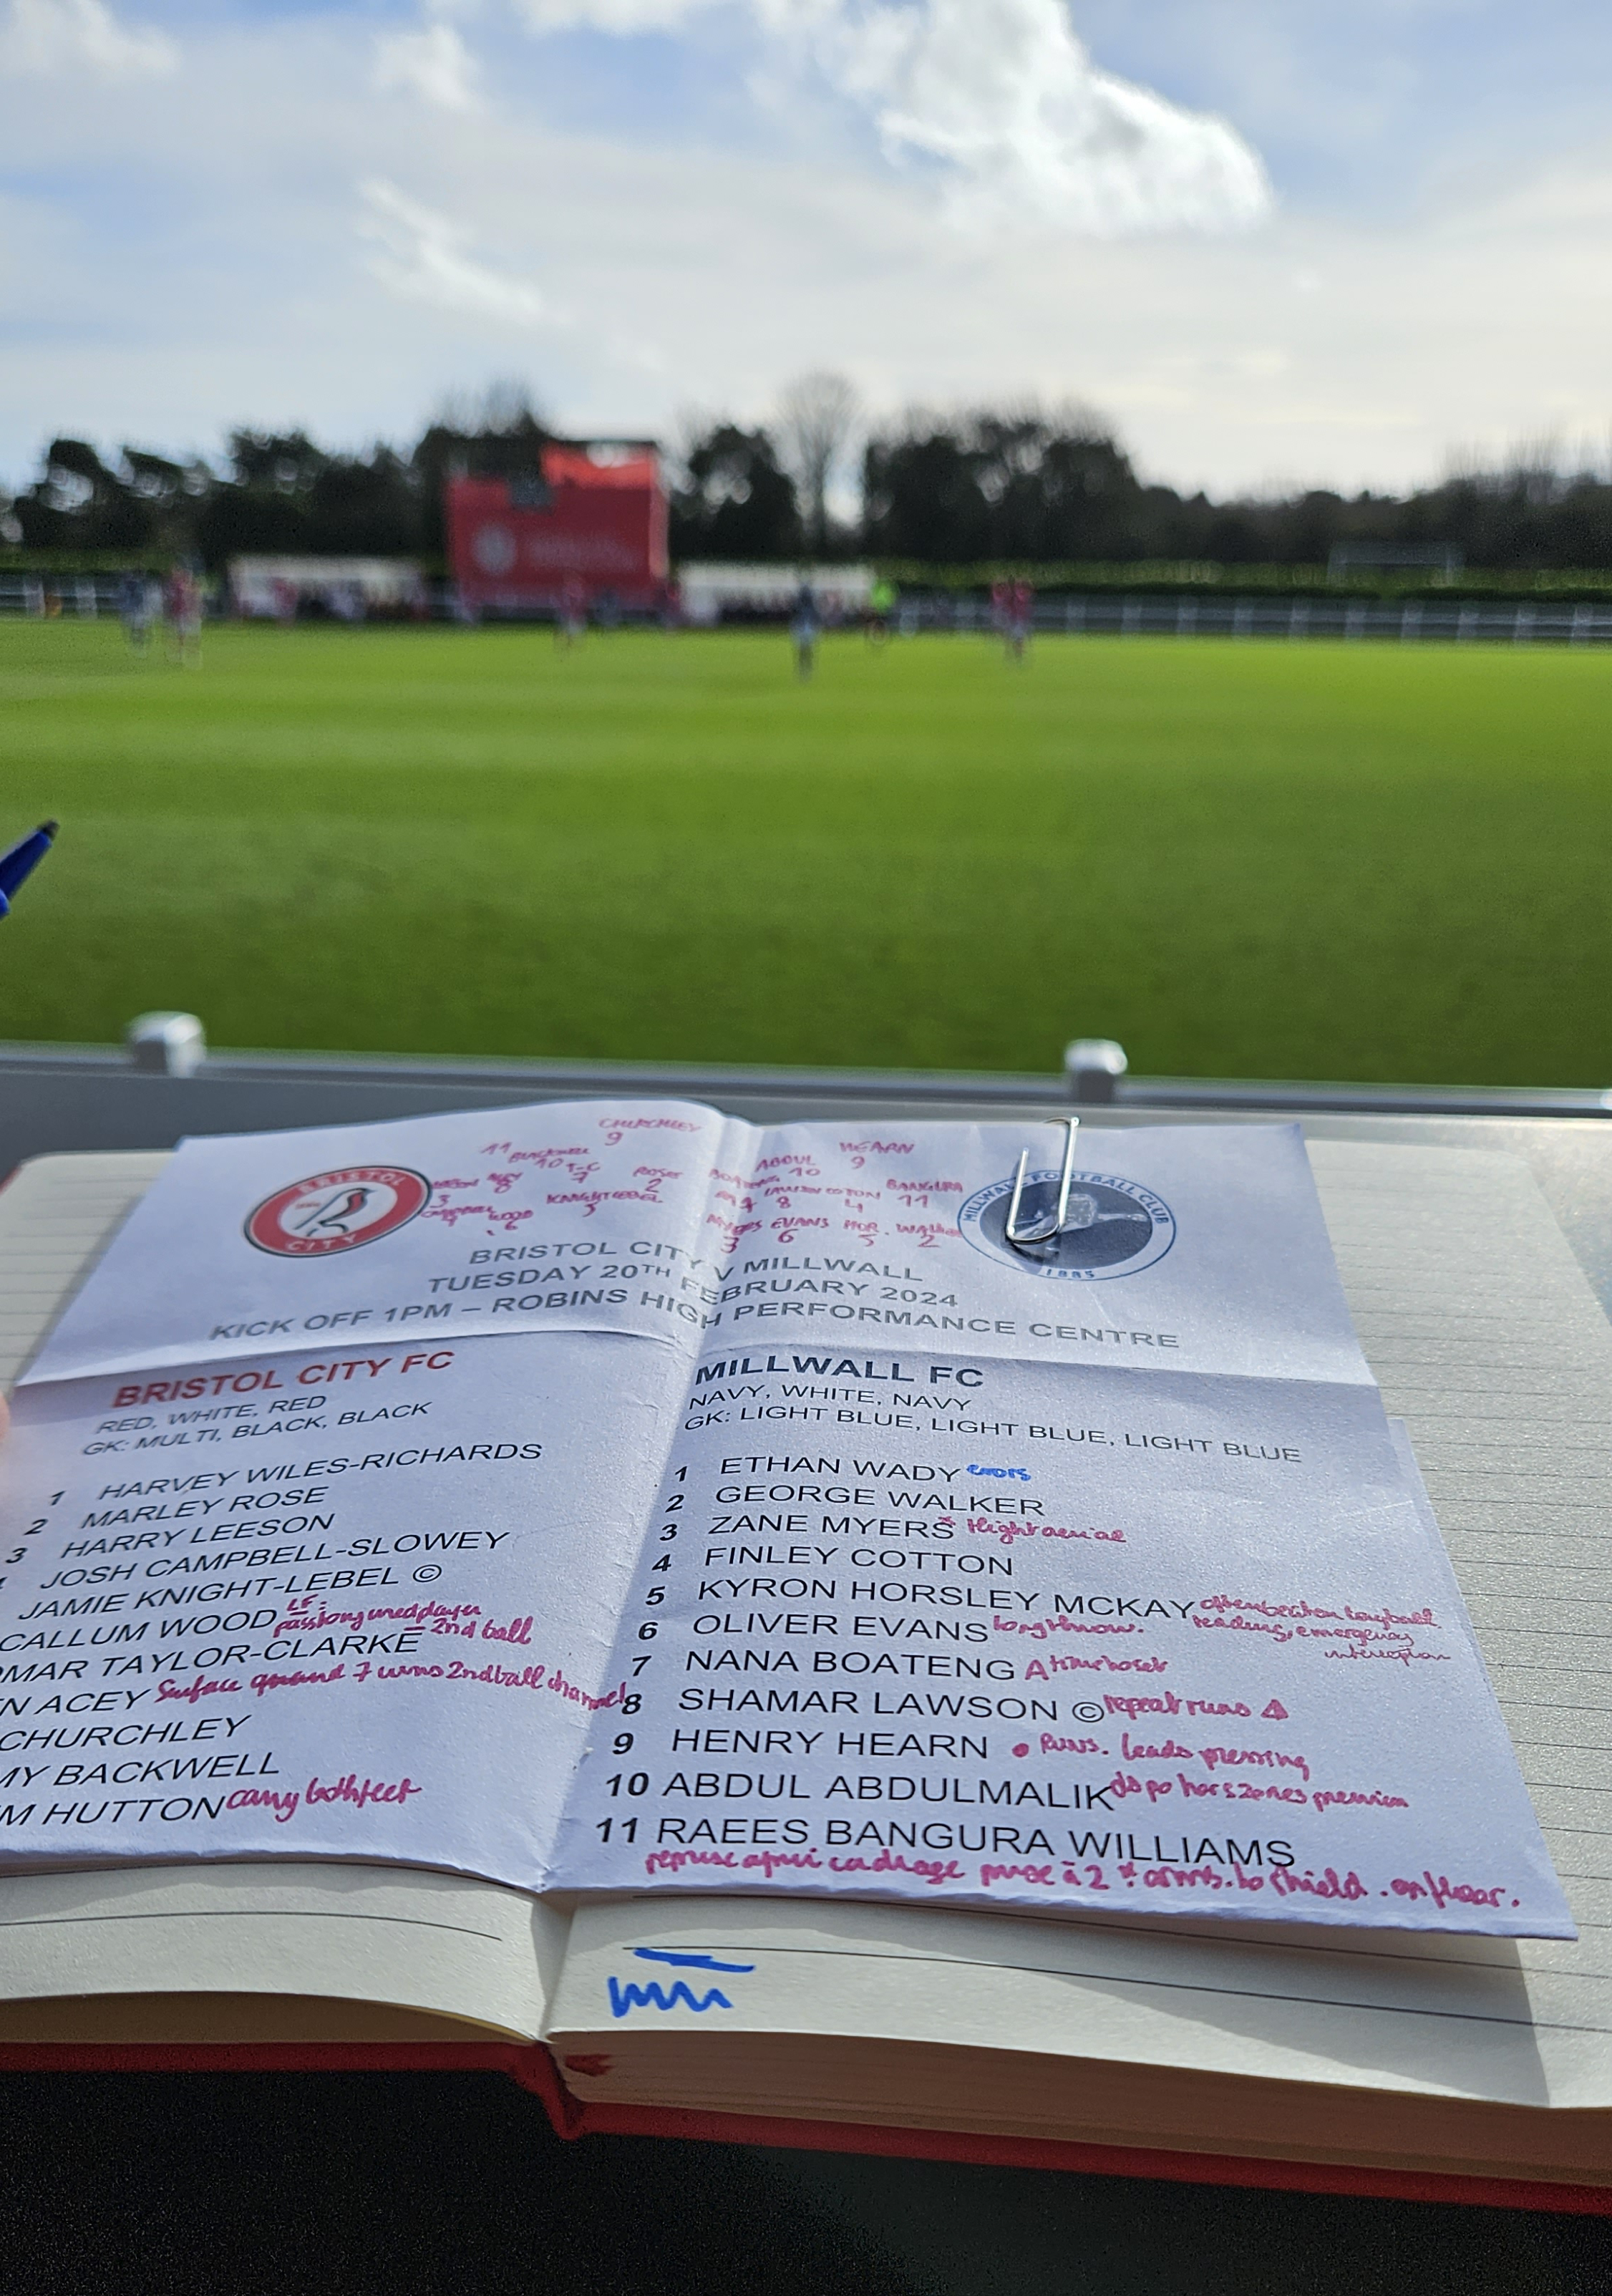 CHURCHLEY
9
11 BACKWELL
10 T-C
7
ROSE
2
8
3
KNIGHT LEBEL
5
WOOD
6
HEARN
9
ABDUL
10
BANGURA
11
LAWSON COTTON
8 4
MYERS EVANS HOR. WALKER
3 6 5 2
BRISTOL
CITY
MILLWALL FOOTBALL CLUB
1885
BRISTOL CITY V MILLWALL
TUESDAY 20TH FEBRUARY 2024
KICK OFF 1PM – ROBINS HIGH PERFORMANCE CENTRE
BRISTOL CITY FC
RED, WHITE, RED
GK: MULTI, BLACK, BLACK
1 HARVEY WILES-RICHARDS
2 MARLEY ROSE
3 HARRY LEESON
JOSH CAMPBELL-SLOWEY
JAMIE KNIGHT-LEBEL ©
CALLUM WOOD LF: pass long uned player
MAR TAYLOR-CLARKE = 2nd ball
N ACEY Surface quand 7 wins 2nd ball channel
CHURCHLEY
MY BACKWELL
M HUTTON carry both feet
MILLWALL FC
NAVY, WHITE, NAVY
GK: LIGHT BLUE, LIGHT BLUE, LIGHT BLUE
1 ETHAN WADY errors
2 GEORGE WALKER
3 ZANE MYERS * Hight aerial
4 FINLEY COTTON
5 KYRON HORSLEY MCKAY often beaten long ball
reading, emergency
interception
6 OLIVER EVANS long throw.
7 NANA BOATENG
8 SHAMAR LAWSON © repeat runs
9 HENRY HEARN • Runs. leads pressing
10 ABDUL ABDULMALIK dispo hors zones pression
11 RAEES BANGURA WILLIAMS
cadrage prise à 2 * arms. to shield. on floor.